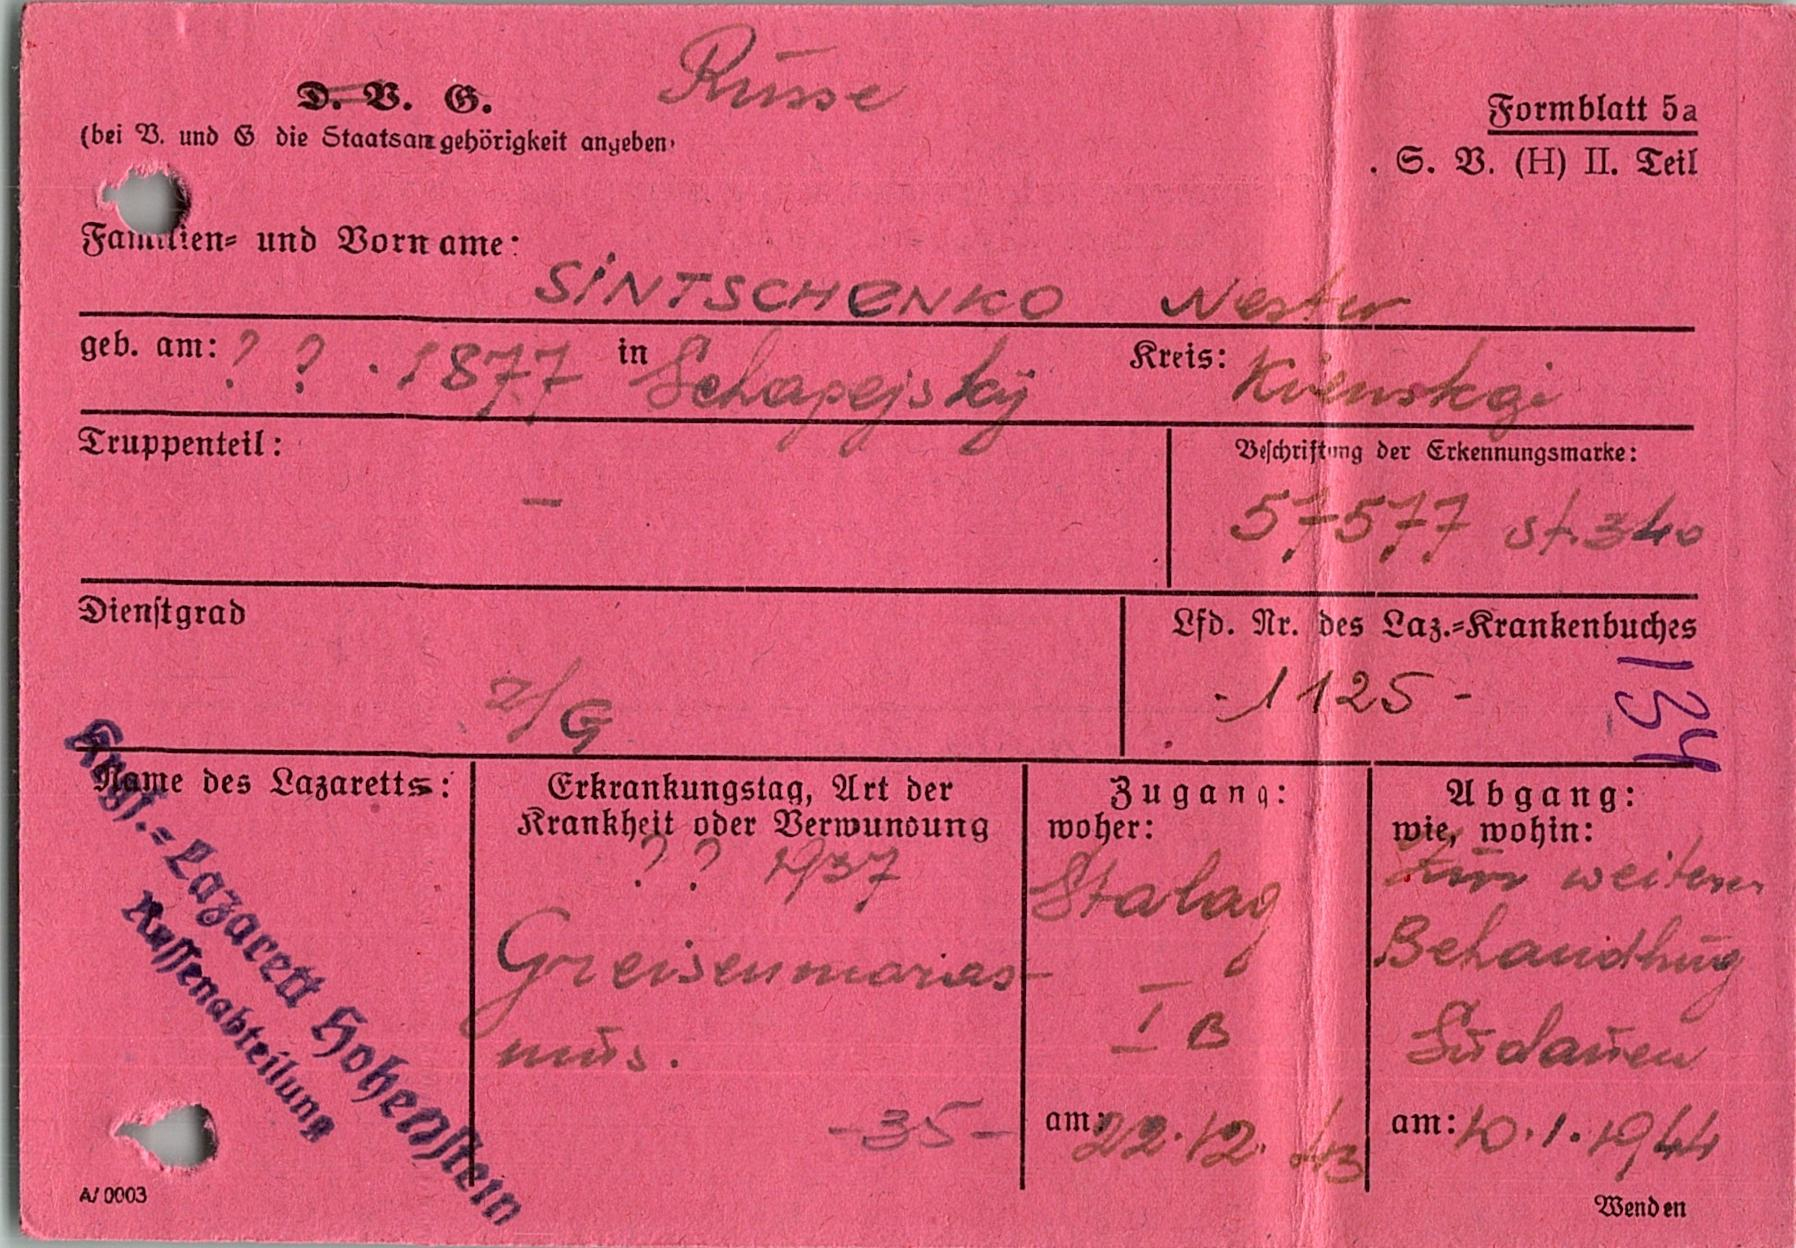 Russe
D. V. G.
(bei V. und G die Staatsangehörigkeit angeben,
Formblatt 5a
. S. V. (H) II. Teil
Familien- und Vorname:
SINTSCHENKO Nester
geb. am: ? ? . 1877 in Schapejsky Kreis: Kienskgi
Truppenteil:
–
Beschriftung der Erkennungsmarke:
57577 St. 340
Dienstgrad
Z/G
Lfd. Nr. des Laz.-Krankenbuches
- 1125 -
134
Name des Lazaretts:
Krgf.-Lazarett Hohenstein
Russenabteilung
Erkrankungstag, Art der
Krankheit oder Verwundung
? ? 1937
Greisenmaras-
mus.
-35-
Zugang:
woher:
Stalag
I B
am: 22.12.43
Abgang:
wie, wohin:
Zur weiteren
Behandlung
Sudauen
am: 10.1.1944
A/0003
Wenden